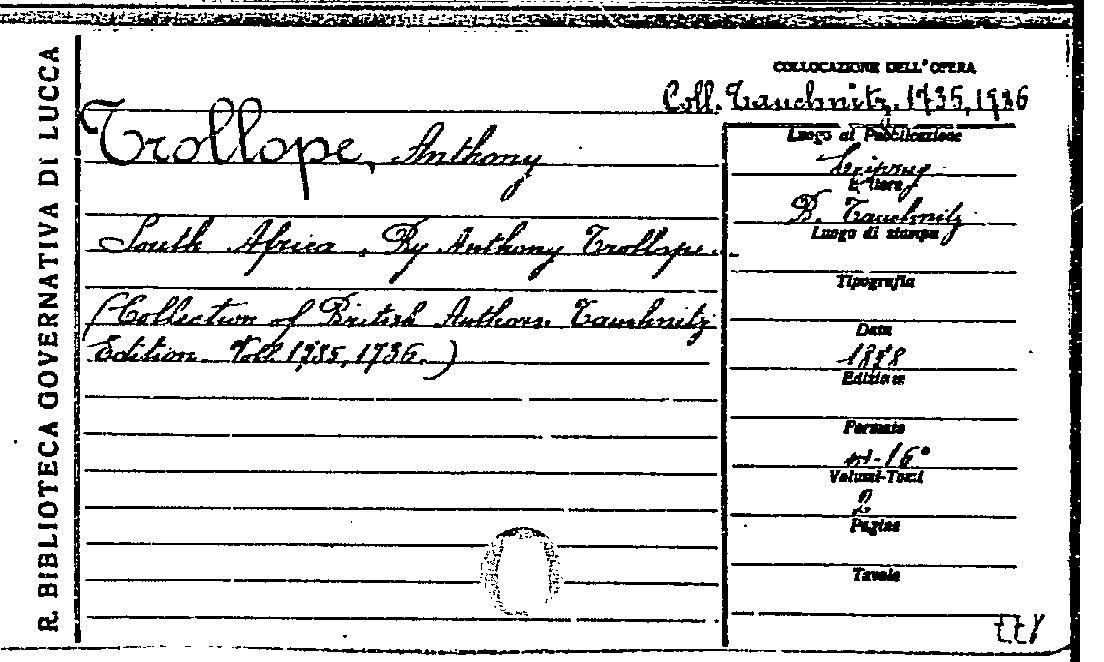 R. BIBLIOTECA GOVERNATIVA DI LUCCA
COLLOCAZIONE DELL'OPERA
Coll. Tauchnitz. 1735, 1736
Trollope, Anthony
South Africa. By Anthony Trollope.
(Collection of British Authors. Tauchnitz
Edition. Voll. 1735, 1736.)
Luogo di Pubblicazione
Leipzig
Editore
B. Tauchnitz
Luogo di stampa
Tipografia
Data
1878
Edizione
Formato
in-16°
Volumi-Tomi
2
Pagine
Tavole